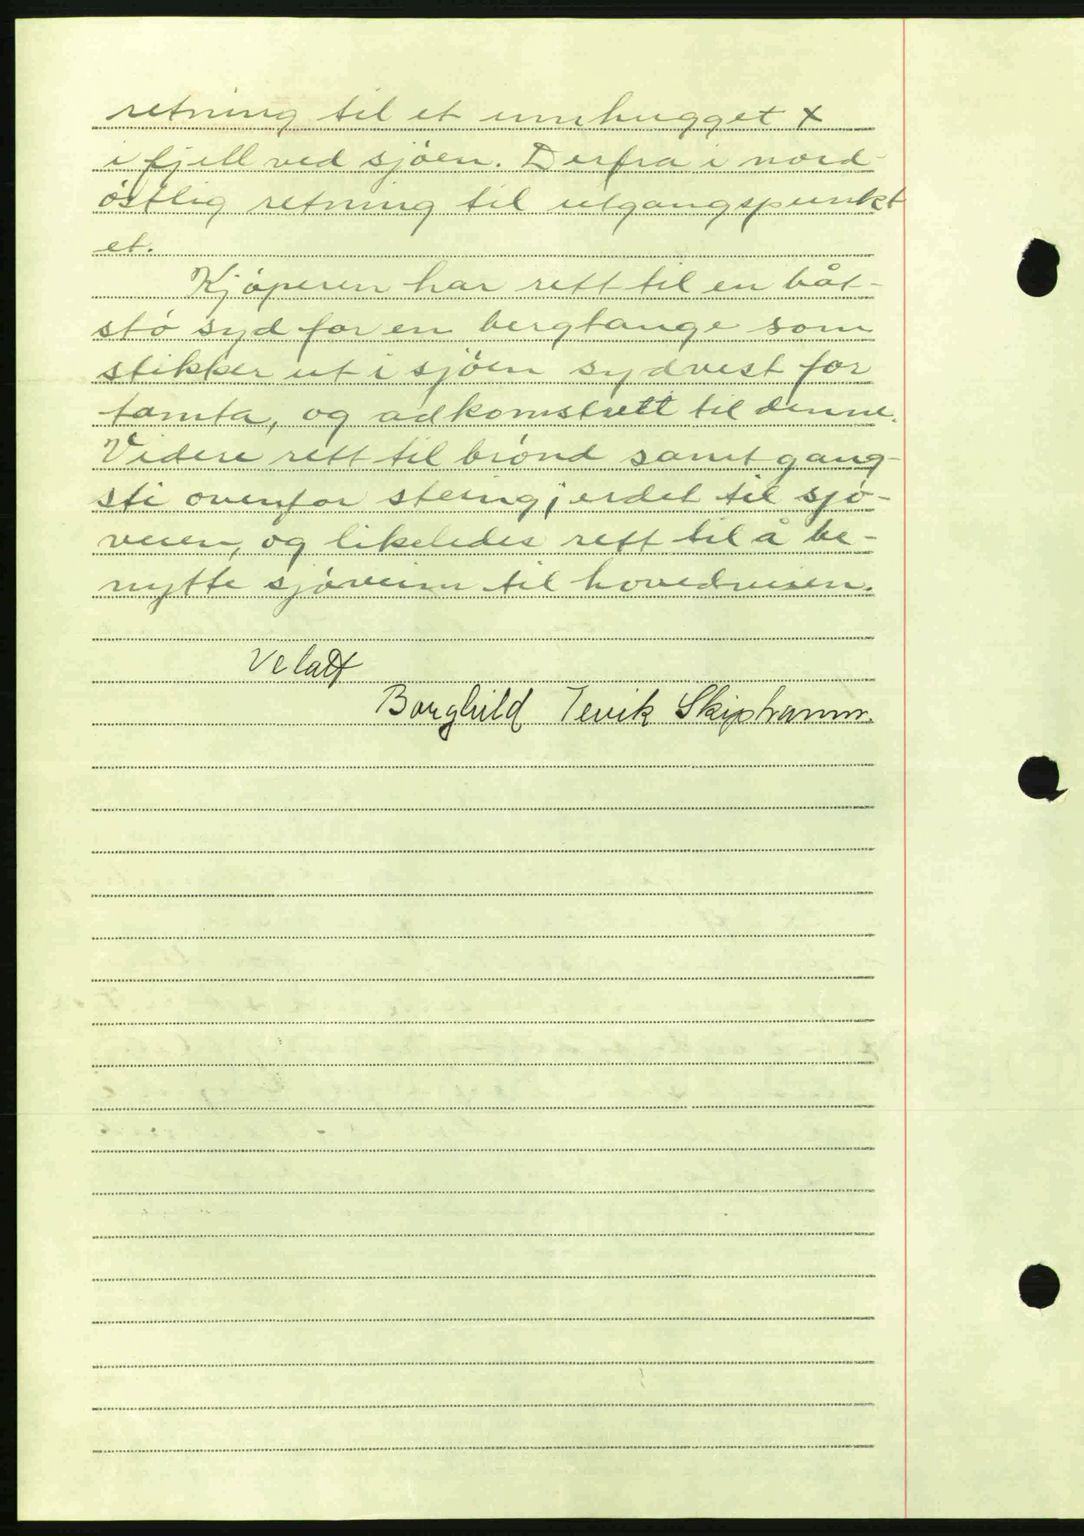 retning til et innhugget x
i fjell ved sjöen. Derfra i nord-
östlig retning til utgangspunkt
et.
Kjöperen har rett til en båt-
stö syd for en bergtange som
stikker ut i sjöen sydvest for
tomta, og adkomstrett til denne.
Videre rett til brönd samt gang-
sti ovenfor steingjerdet til sjö-
veien, og likeledes rett til å be-
nytte sjöveien til hovedveien.
Borghild Tevik Skiphamn.